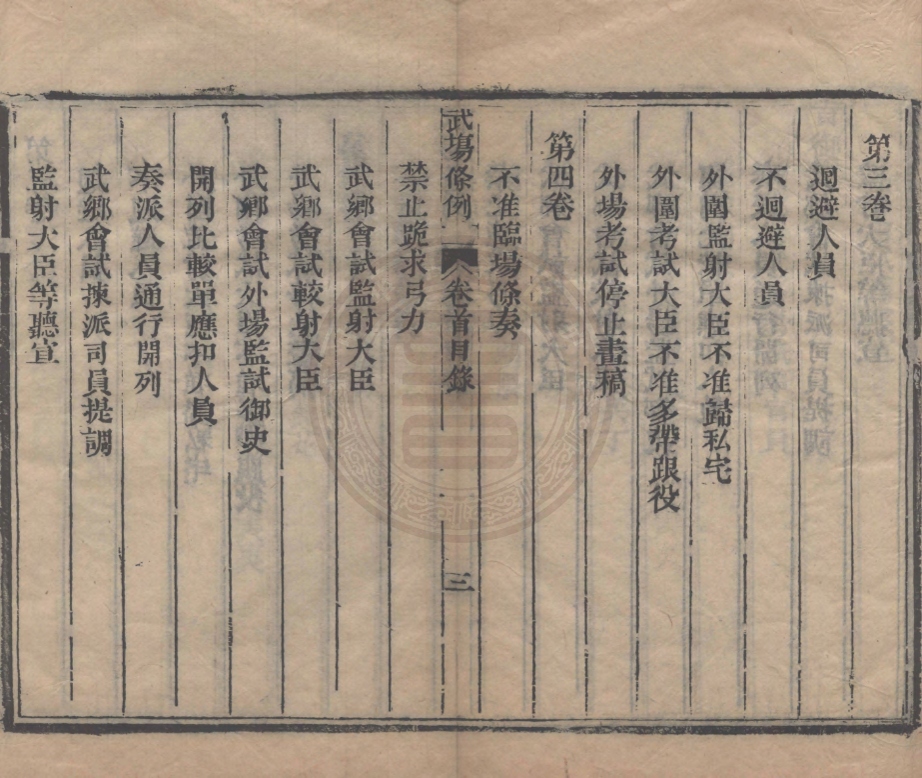 第三卷
迴避人員
不迴避人員
外圍監射大臣不准歸私宅
外圍考試大臣不准多帶跟役
外場考試停止畫稿
第四卷
不准臨場條奏
武塲條例 卷首目錄 三
禁止跪求弓力
武鄉會試監射大臣
武鄉會試較射大臣
武鄉會試外場監試御史
開列比較單應扣人員
奏派人員通行開列
武鄉會試揀派司員提調
監射大臣等聽宣